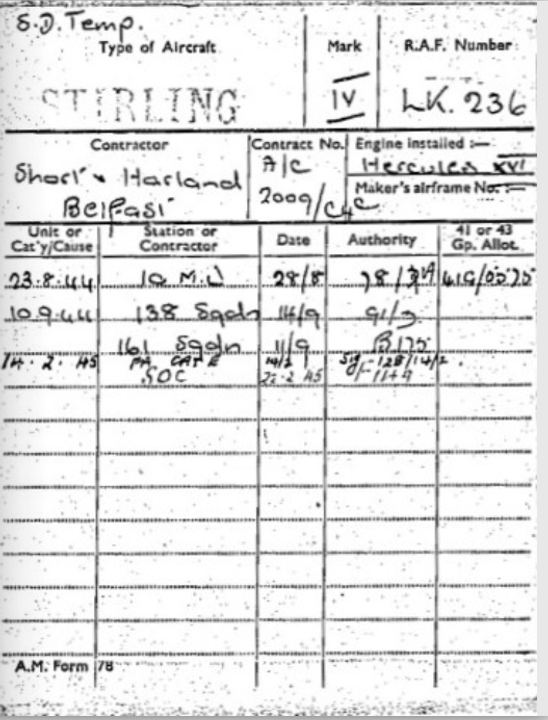 S.D. Temp.
Type of Aircraft Mark R.A.F. Number
STIRLING IV LK. 236
Contractor Contract No. Engine installed :—
Short & Harland A/C Hercules XVI
Belfast 2009/C4C Maker's airframe No. :—
Unit or Cat'y/Cause Station or Contractor Date Authority 41 or 43 Gp. Allot.
23.8.44 10 M.U 28/8 41G/
10.9.44 138 Sqdn 14/9
161 Sqdn 11/9
14.2.45 FA CAT E 14/2
SOC 22.2.45
A.M. Form 78